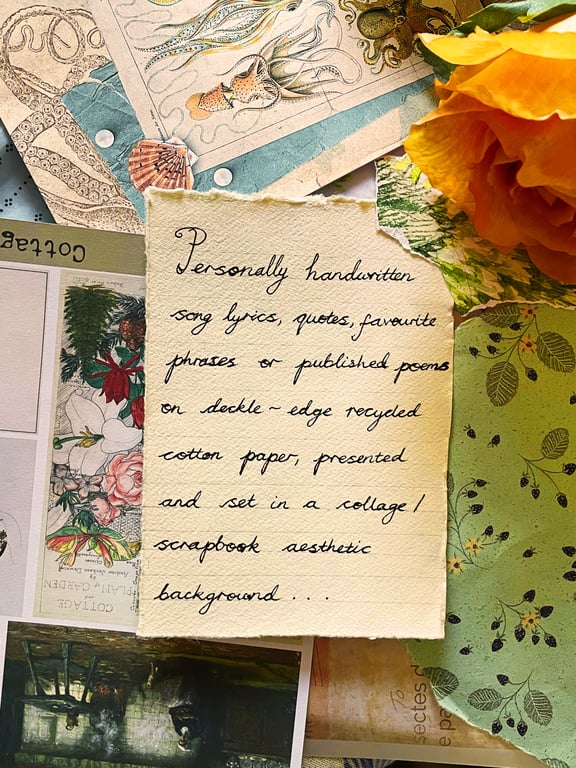 Personally handwritten
song lyrics, quotes, favourite
phrases or published poems
on deckle ~ edge recycled
cotton paper, presented
and set in a collage /
scrapbook aesthetic
background . . .
Cottag
COTTAGE
PLAN & GARDEN
sectes d
e pa